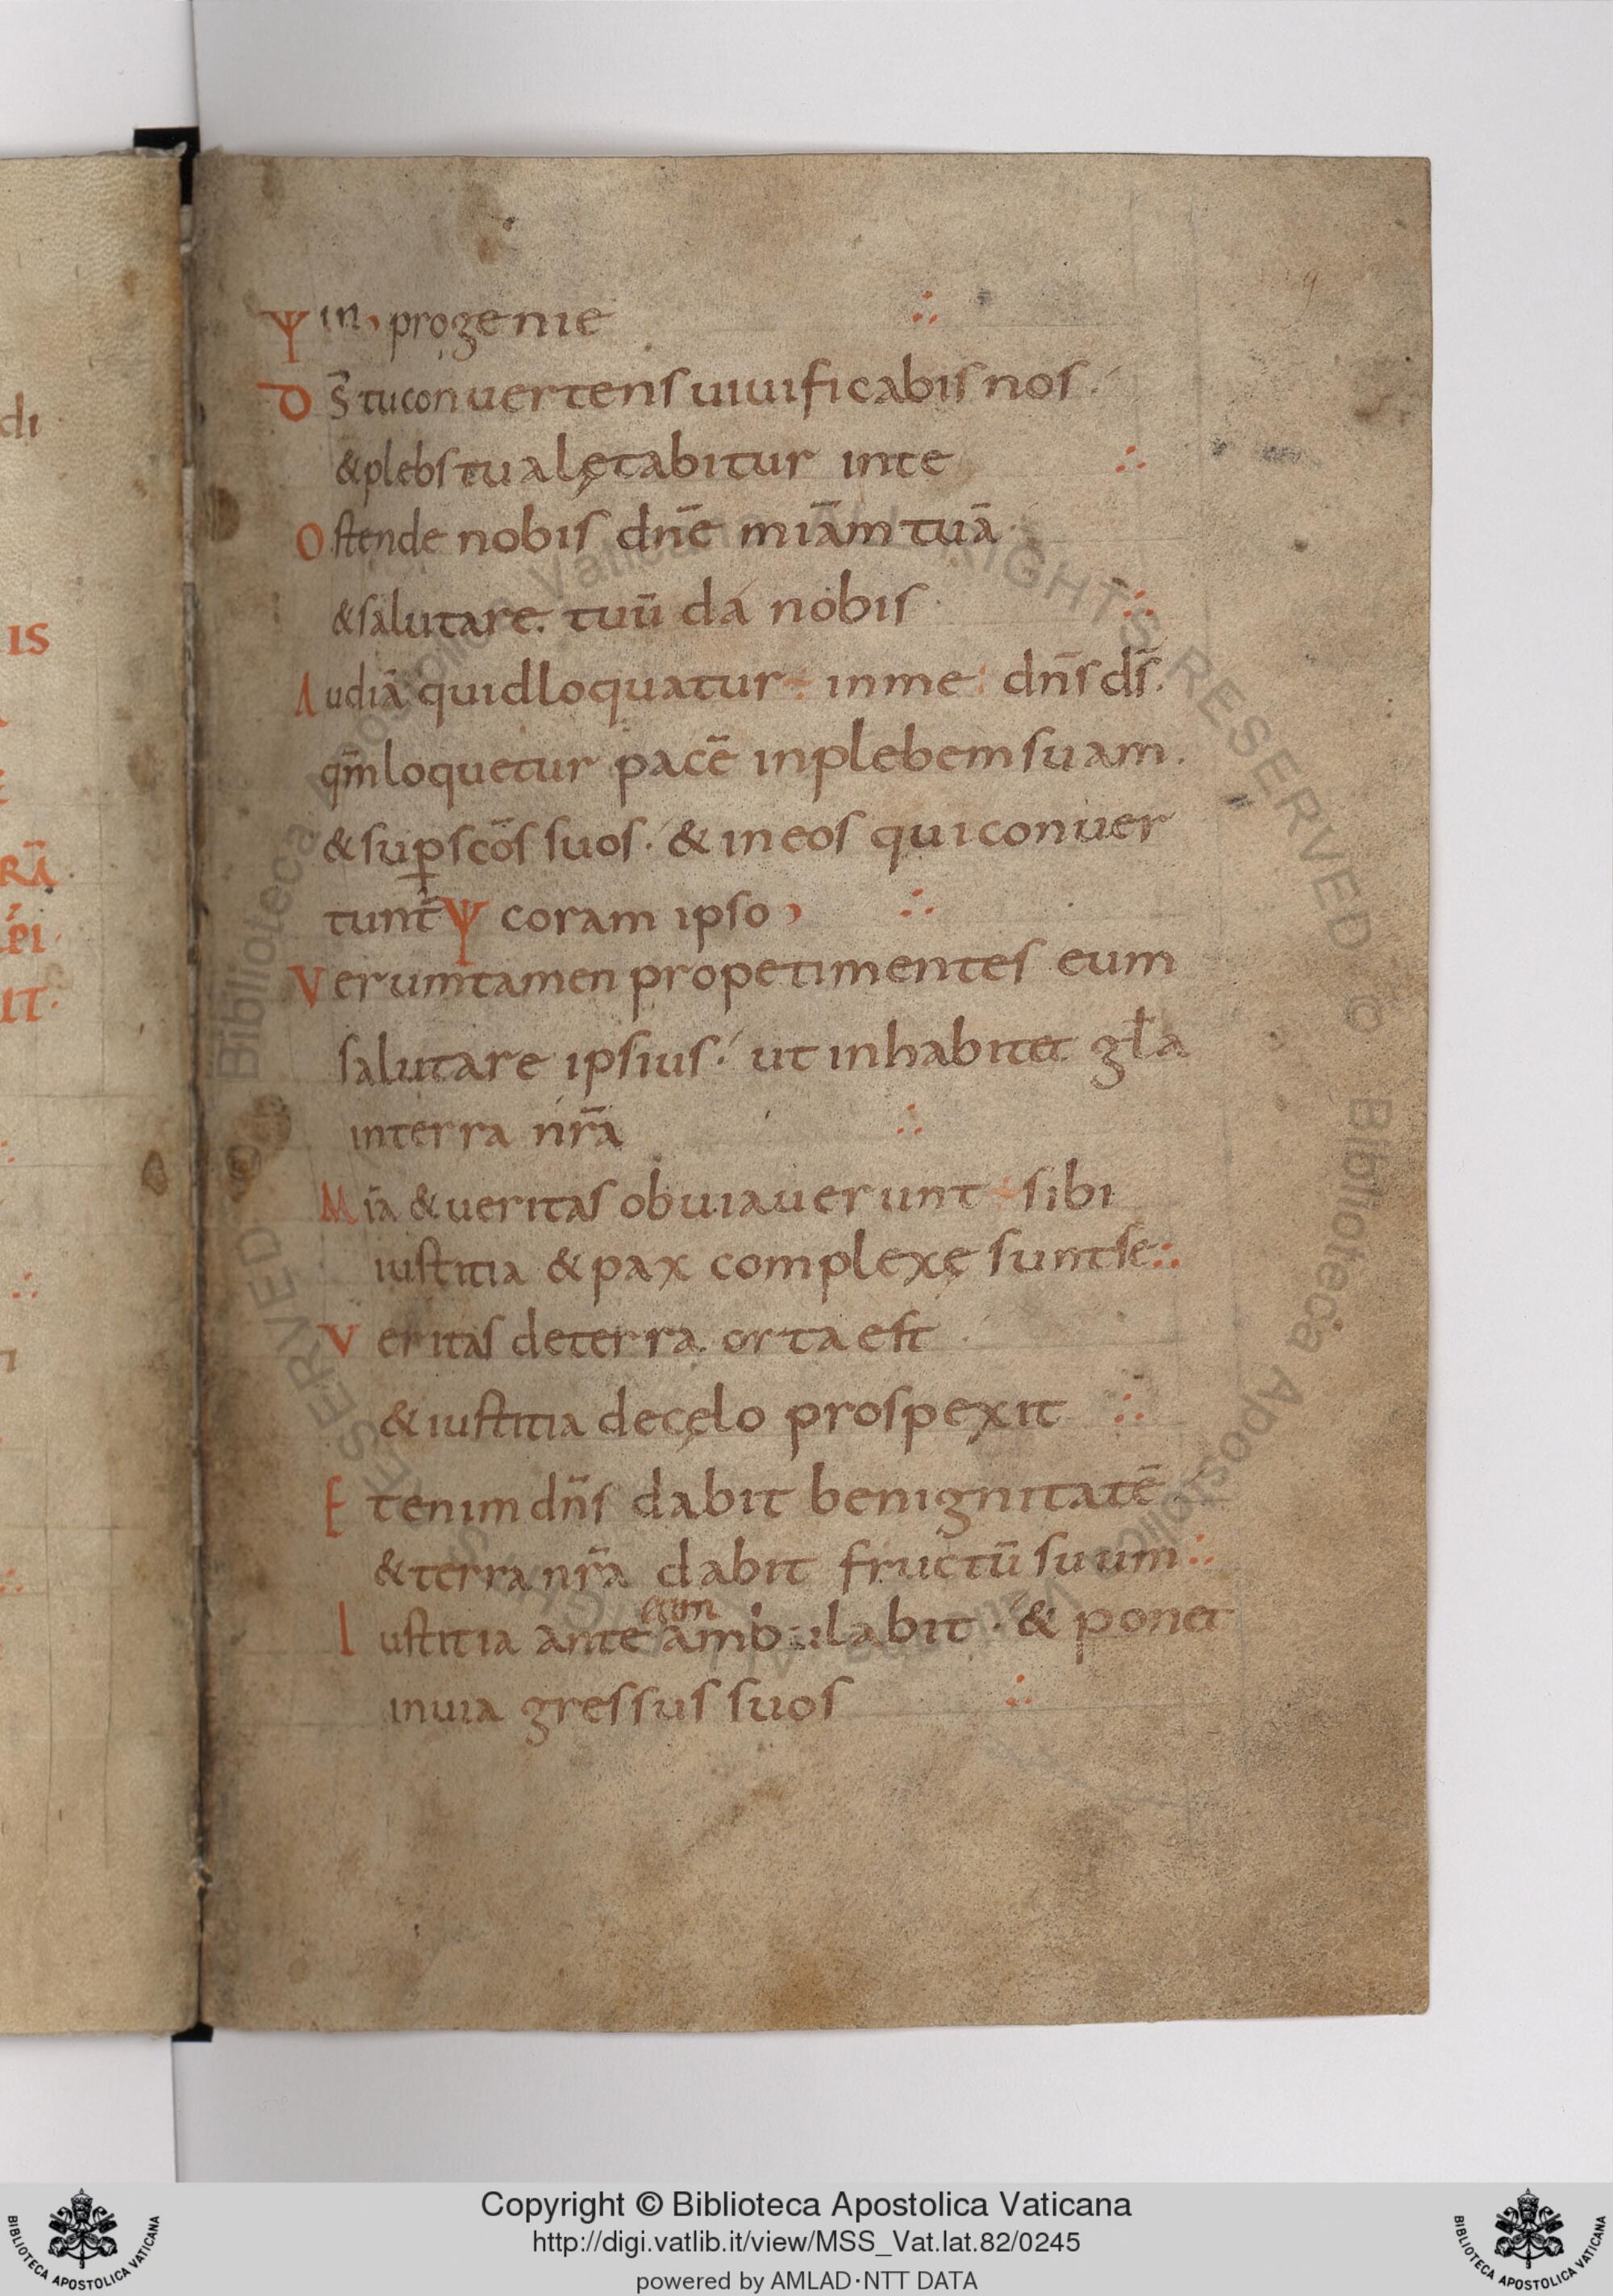 Ψ in, progenie ∴
D s̄ tu conuertens uiuificabis nos.
& plebs tua lętabitur in te ∴
Ostende nobis dnē miām tuā
& salutare. tuū da nobis ∴
Audiā quid loquatur ÷ in me : dn̄s ds̄.
qm̄ loquetur pacē in plebem suam.
& sup̱ scōs suos. & in eos qui conuer
tunt̄ Ψ coram ipso, ∴
Verumtamen prope timentes eum
salutare ipsius. ut inhabitet gła
in terra nr̄a ∴
Mīa & ueritas obuiauerunt ÷ sibi
iustitia & pax complexę sunt se ∴
Veritas de terra. orta est
& iustitia de cęlo prospexit ∴
Etenim dn̄s dabit benignitatē
& terra nr̄a dabit fructū suum ∴
eum
Iustitia ante ambulabit. & ponet
in uia gressus suos ∴
di
IS
RĀ
PI
IT
BIBLIOTECA APOSTOLICA VATICANA
Copyright © Biblioteca Apostolica Vaticana
http://digi.vatlib.it/view/MSS_Vat.lat.82/0245
powered by AMLAD·NTT DATA
BIBLIOTECA APOSTOLICA VATICANA